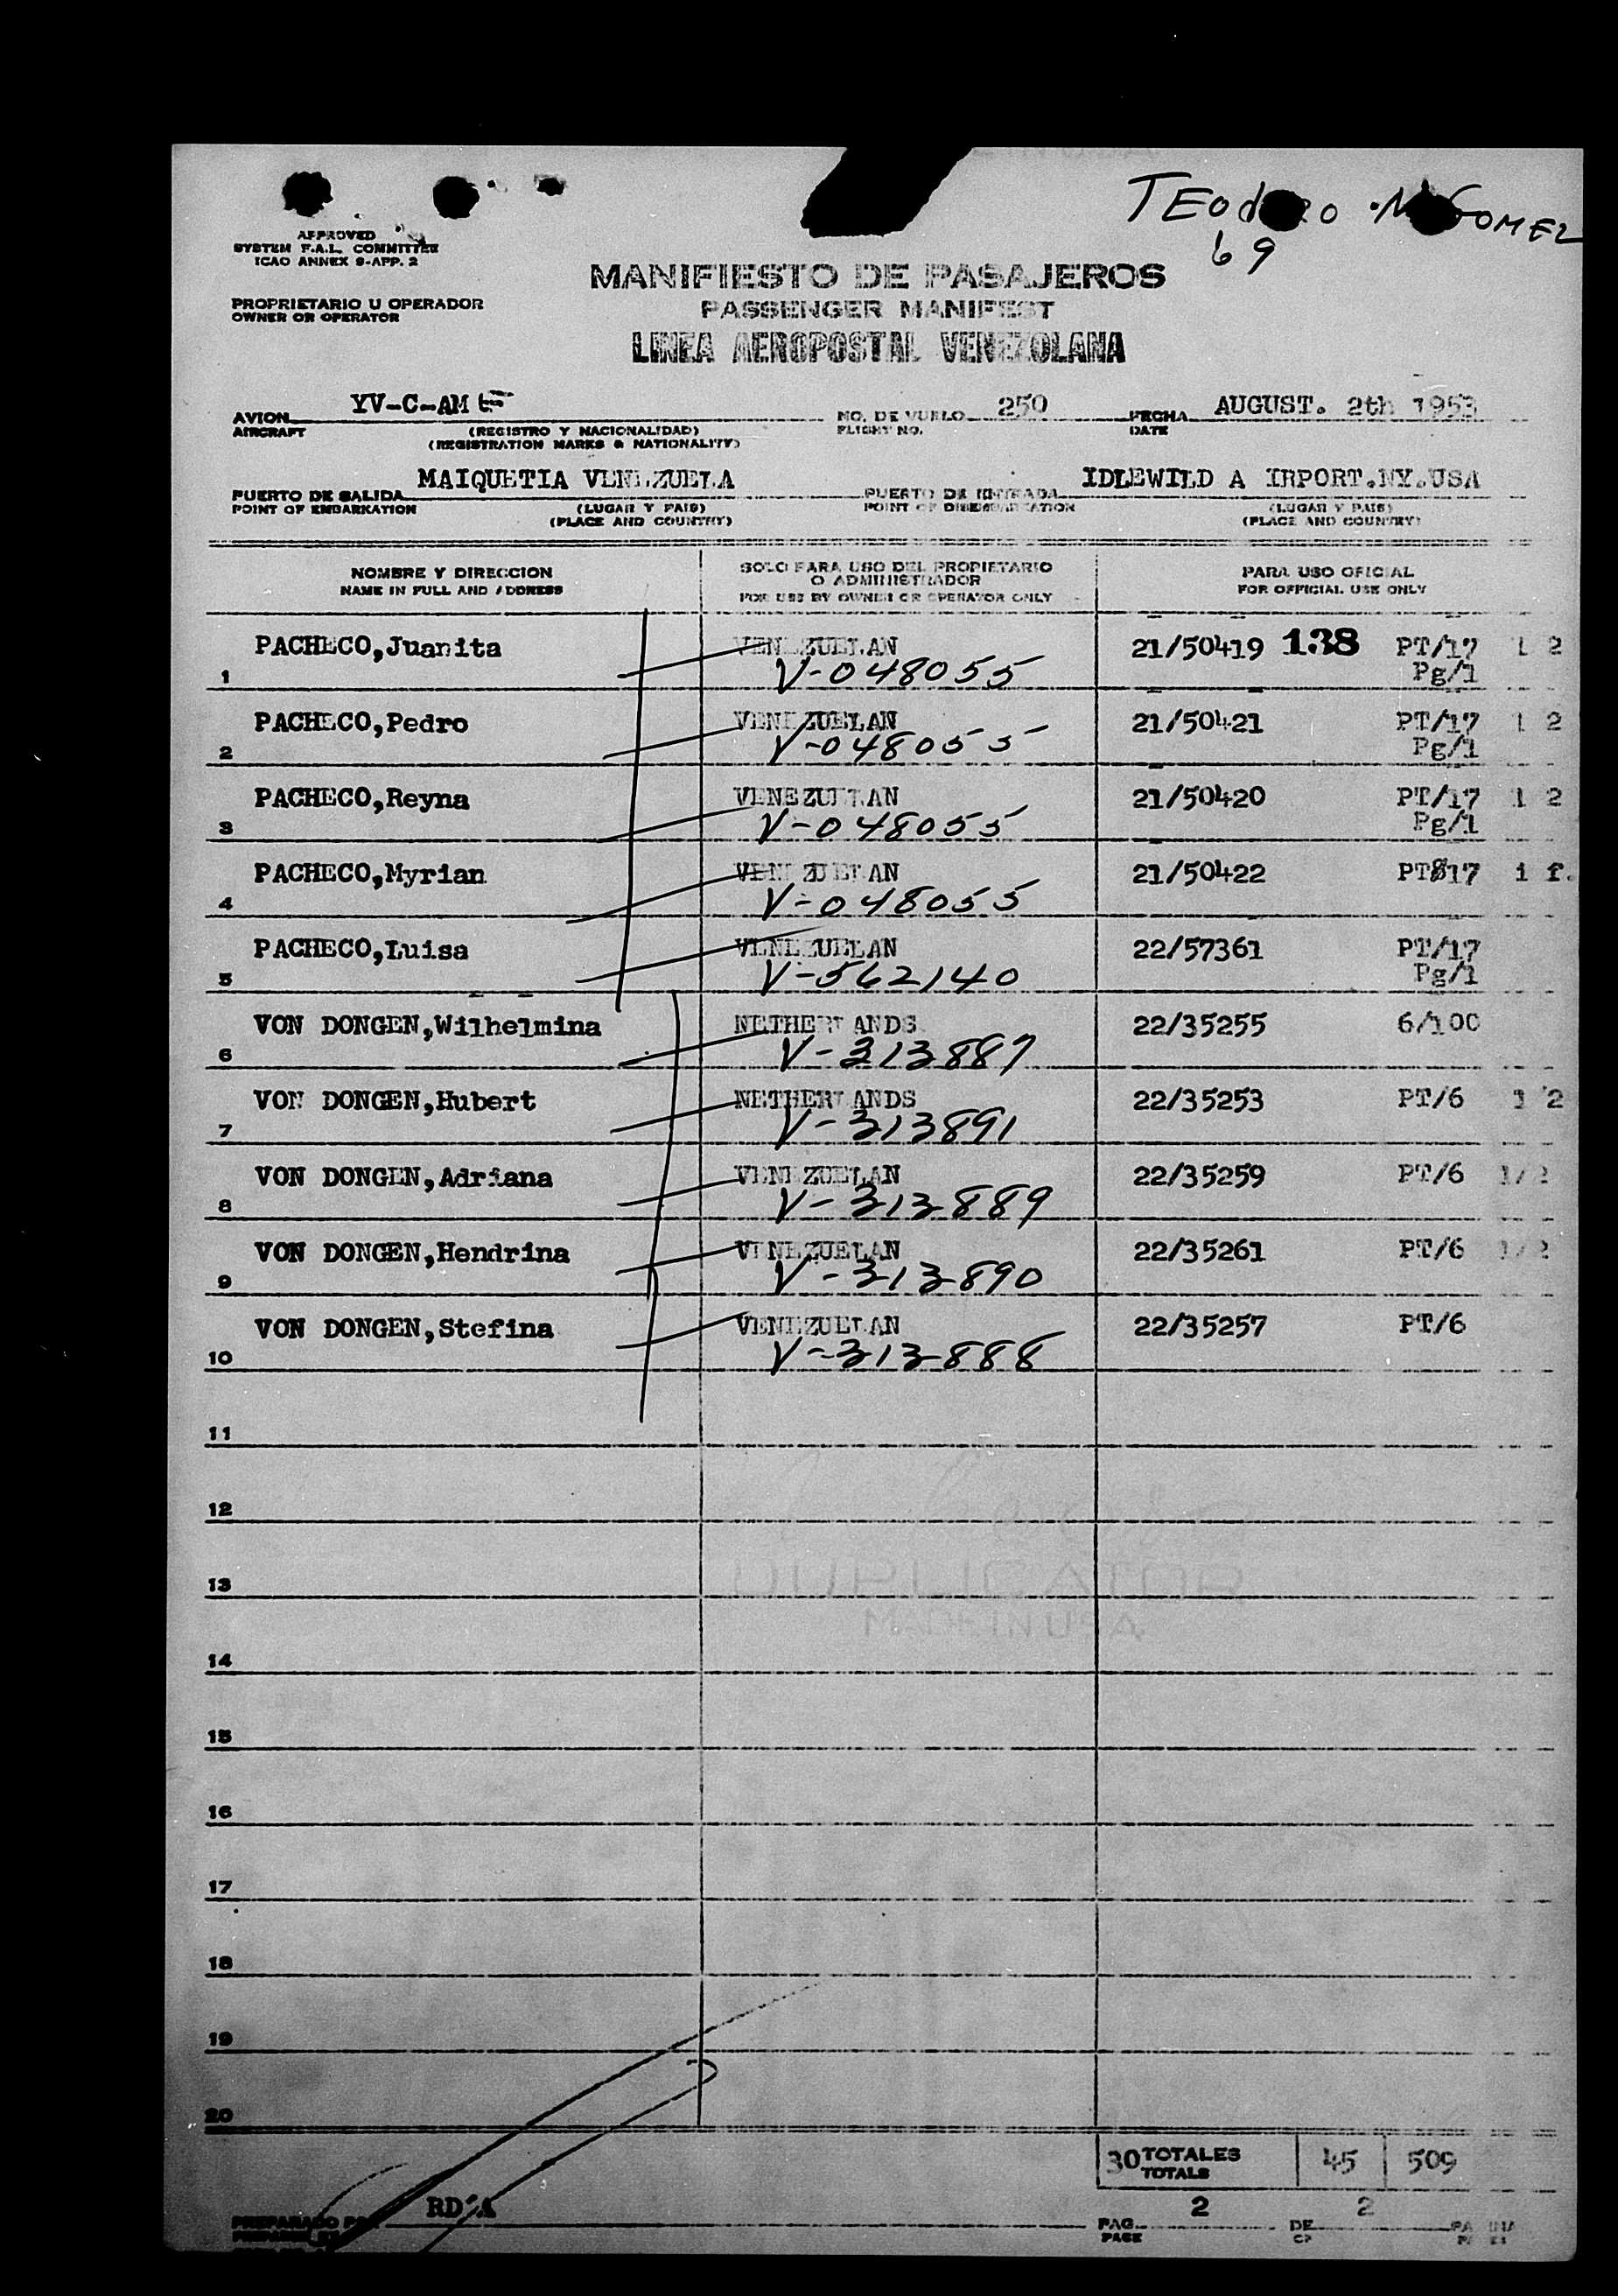 TEodoro M GOMEZ
69
APPROVED
SYSTEM F.A.L. COMMITTEE
ICAO ANNEX 9-APP. 2
PROPRIETARIO U OPERADOR
OWNER OR OPERATOR
MANIFIESTO DE PASAJEROS
PASSENGER MANIFEST
LINEA AEROPOSTAL VENEZOLANA
AVION YV-C-AM E NO. DE VUELO 250 FECHA AUGUST. 2th 1953
AIRCRAFT (REGISTRO Y NACIONALIDAD) FLIGHT NO. DATE
(REGISTRATION MARKS & NATIONALITY)
PUERTO DE SALIDA MAIQUETIA VENEZUELA PUERTO DE ENTRADA IDLEWILD A IRPORT.NY.USA
POINT OF EMBARKATION (LUGAR Y PAIS) POINT OF DISEMBARCATION (LUGAR Y PAIS)
(PLACE AND COUNTRY) (PLACE AND COUNTRY)
NOMBRE Y DIRECCION SOLO PARA USO DEL PROPIETARIO O ADMINISTRADOR PARA USO OFICIAL
NAME IN FULL AND ADDRESS FOR USE BY OWNER OR OPERATOR ONLY FOR OFFICIAL USE ONLY
PACHECO,Juanita VENEZUELAN 21/50419 138 PT/17 1 2
1 V-048055 Pg/1
PACHECO,Pedro VENEZUELAN 21/50421 PT/17 1 2
2 V-048055 Pg/1
PACHECO,Reyna VENEZUELAN 21/50420 PT/17 1 2
3 V-048055 Pg/1
PACHECO,Myrian VENEZUELAN 21/50422 PT817 1 f.
4 V-048055
PACHECO,Luisa VENEZUELAN 22/57361 PT/17
5 V-562140 Pg/1
VON DONGEN,Wilhelmina NETHERLANDS 22/35255 6/100
6 V-313887
VON DONGEN,Hubert NETHERLANDS 22/35253 PT/6 1 2
7 V-313891
VON DONGEN,Adriana VENEZUELAN 22/35259 PT/6 1/2
8 V-313889
VON DONGEN,Hendrina VENEZUELAN 22/35261 PT/6 1/2
9 V-313890
VON DONGEN,Stefina VENEZUELAN 22/35257 PT/6
10 V-313888
11
12
13
14
15
16
17
18
19
20
30 TOTALES 45 509
TOTALS
PREPARADO POR PAG. 2 DE 2 PAGINA
PAGE OF